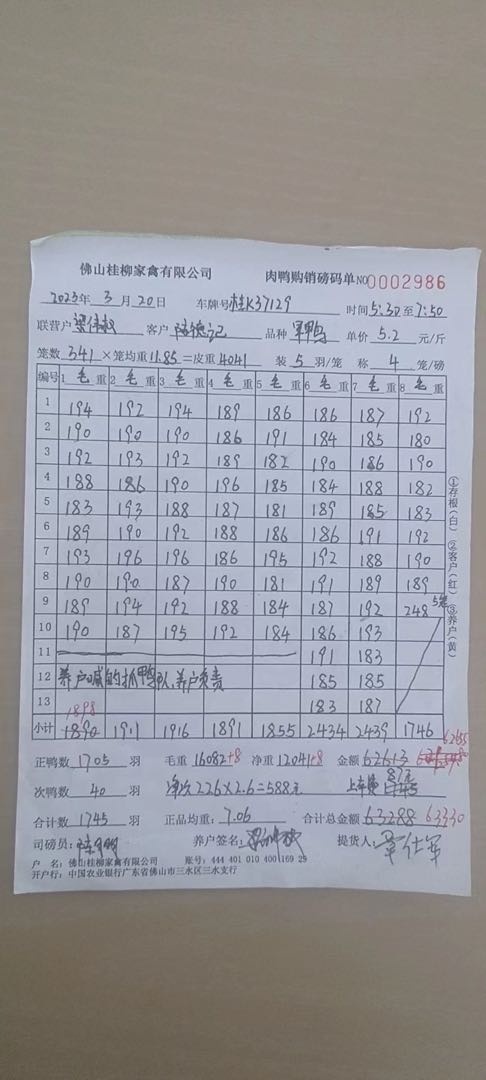 佛山桂柳家禽有限公司 肉鸭购销磅码单 NO 0002986
2023年 3月 20日 车牌号 桂K37129 时间 5:30至7:50
联营户 客户 品种 单价 5.2 元/斤
笼数 341 ×笼均重 11.85 =皮重 4041 装 5 羽/笼 称 4 笼/磅
编号 1 毛重 2 毛重 3 毛重 4 毛重 5 毛重 6 毛重 7 毛重 8 毛重
1 194 192 194 189 186 186 187 192
2 190 190 190 186 191 184 185 180
3 192 193 192 189 182 190 186 190
4 188 186 190 196 185 184 188 182
5 183 193 188 187 181 189 185 183
6 189 190 192 188 186 186 191 192
7 193 196 196 186 195 192 188 190
8 190 190 187 190 181 191 189 189
9 189 194 192 188 184 187 192 248 5笼
10 190 187 195 192 184 186 193
11 191 183
12 养户喊的抓鸭队,养户负责 185 185
13 183 187
1898
小计 1890 1911 1916 1891 1855 2434 2439 1746
62655
正鸭数 1705 羽 毛重 16082+8 净重 12041+8 金额 62613
次鸭数 40 羽 净次 226×2.6=588元 87元
合计数 1745 羽 正品均重: 7.06 合计总金额 63288 63330
司磅员: 养户签名: 提货人:
户 名: 佛山桂柳家禽有限公司 账号: 444 401 010 400 169 29
开户行: 中国农业银行广东省佛山市三水区三水支行
①存根(白) ②客户(红) ③养户(黄)